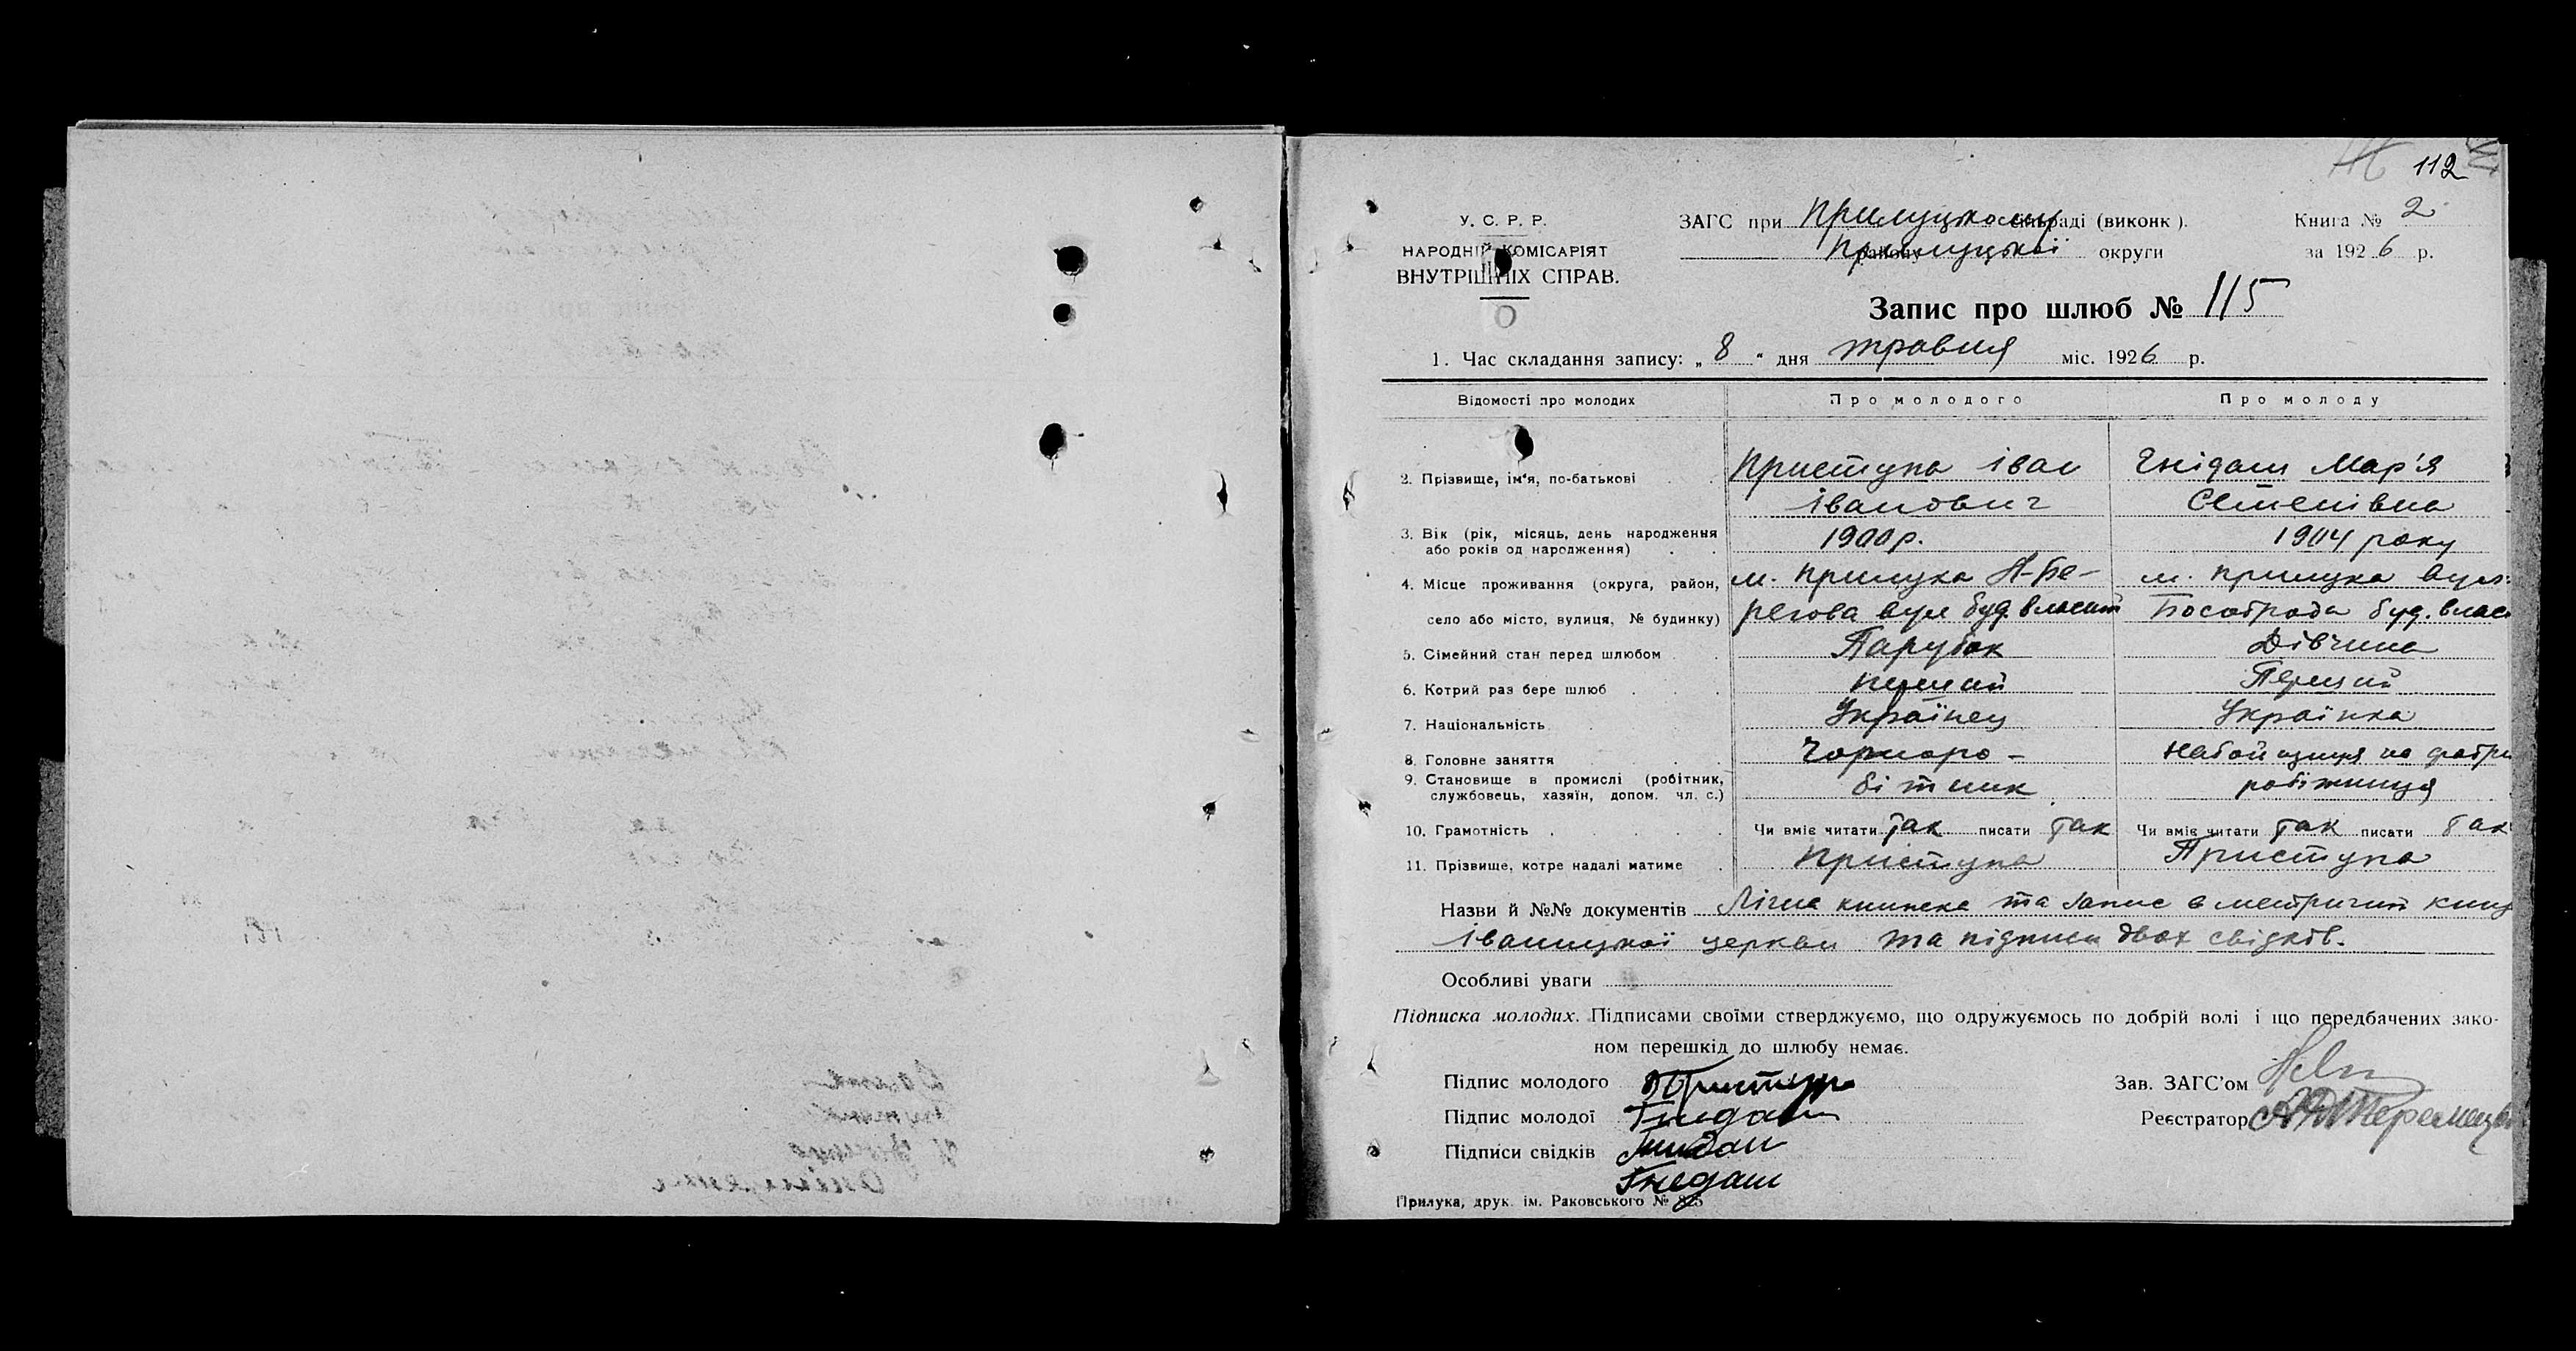 112
У. С. Р. Р.
НАРОДНІЙ КОМІСАРІЯТ
ВНУТРІШНІХ СПРАВ.
ЗАГС при Прилуцькому сільраді (виконк ).
району Прилуцької округи
Книга № 2
за 1926 р.
Запис про шлюб № 115
1. Час складання запису: „ 8 “ дня травня міс. 1926 р.
Відомості про молодих Про молодого Про молоду
2. Прізвище, ім'я, по-батькові Приступа Іван Гнідаш Мар'я
Іванович Семенівна
3. Вік (рік, місяць, день народження 1900 р. 1904 року
або років од народження)
4. Місце проживання (округа, район, м. Прилука Н-Бе- м. Прилука вул.
село або місто, вулиця, № будинку) регова вул буд. власн буд. влас
5. Сімейний стан перед шлюбом Парубок Дівчина
6. Котрий раз бере шлюб перший Перший
7. Національність Українець Українка
8. Головне заняття Чорноро- Набойщиця на фабри
9. Становище в промислі (робітник, бітник робітниця
службовець, хазяїн, допом. чл. с.)
10. Грамотність Чи вміє читати так писати так Чи вміє читати так писати так
11. Прізвище, котре надалі матиме Приступа Приступа
Назви й №№ документів Лічна книжка та запис в метричній книзі
Іваницької церкви та підписи двох свідків.
Особливі уваги
Підписка молодих. Підписами своїми стверджуємо, що одружуємось по добрій волі і що передбачених зако-
ном перешкід до шлюбу немає.
Підпис молодого Приступа Зав. ЗАГС'ом
Підпис молодої Гнедаш Реєстратор
Підписи свідків Гнидаш
Гнедаш
Прилука, друк. ім. Раковського № 825